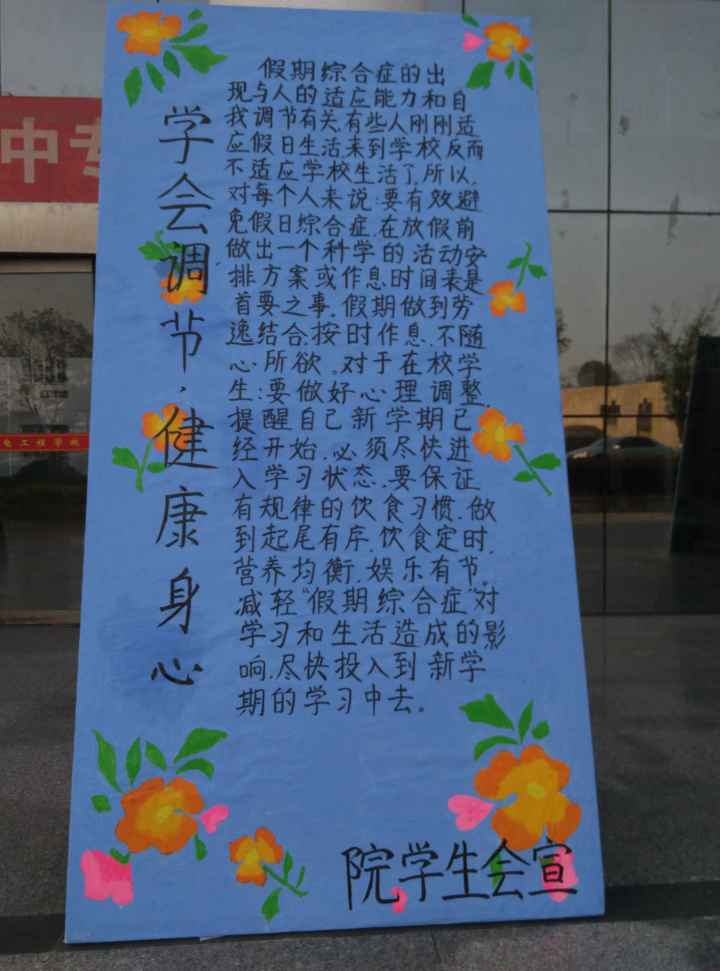 中专
电工程学校
学会调节·健康身心
假期综合症的出
现与人的适应能力和自
我调节有关.有些人刚刚适
应假日生活来到学校反而
不适应学校生活了,所以,
对每个人来说:要有效避
免假日综合症.在放假前
做出一个科学的活动安
排方案或作息时间表是
首要之事.假期做到劳
逸结合.按时作息.不随
心所欲。对于在校学
生:要做好心理调整,
提醒自己新学期已
经开始.必须尽快进
入学习状态.要保证
有规律的饮食习惯.做
到起尾有序.饮食定时.
营养均衡.娱乐有节。
减轻“假期综合症”对
学习和生活造成的影
响.尽快投入到新学
期的学习中去。
院学生会宣